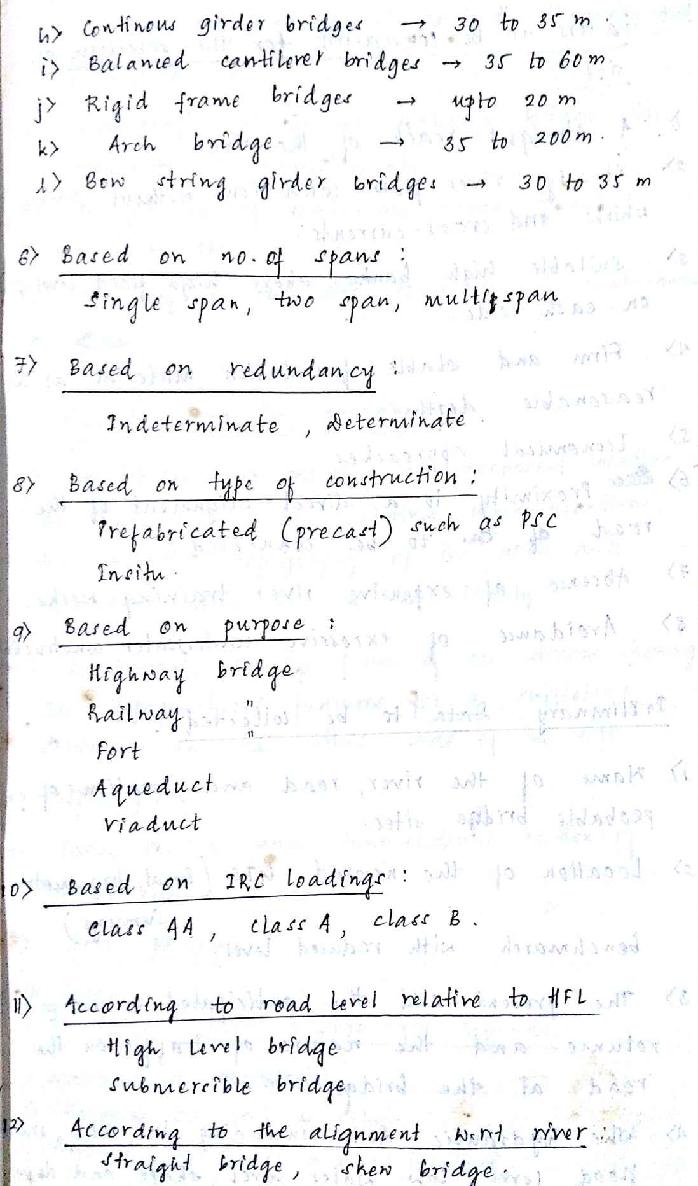 h> Continous girder bridges → 30 to 35 m.
i> Balanced cantilever bridges → 35 to 60 m
j> Rigid frame bridges → upto 20 m
k> Arch bridge → 35 to 200m.
l> Bow string girder bridges → 30 to 35 m
6> Based on no. of spans :
Single span, two span, multispan
7> Based on redundancy :
Indeterminate , Determinate
8> Based on type of construction :
Prefabricated (precast) such as PSC
Insitu.
9> Based on purpose :
Highway bridge
Railway "
Fort "
Aqueduct
Viaduct
10> Based on IRC loadings :
Class AA , class A , class B .
11> According to road level relative to HFL
High level bridge
Submersible bridge
12> According to the alignment w.r.t river :
Straight bridge , skew bridge .